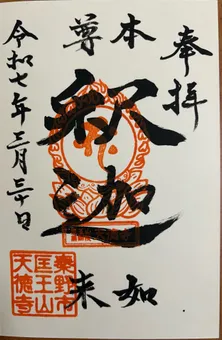 奉拝
本尊
釈
迦
如来
令和七年三月三十日
秦野市
医王山
天徳寺